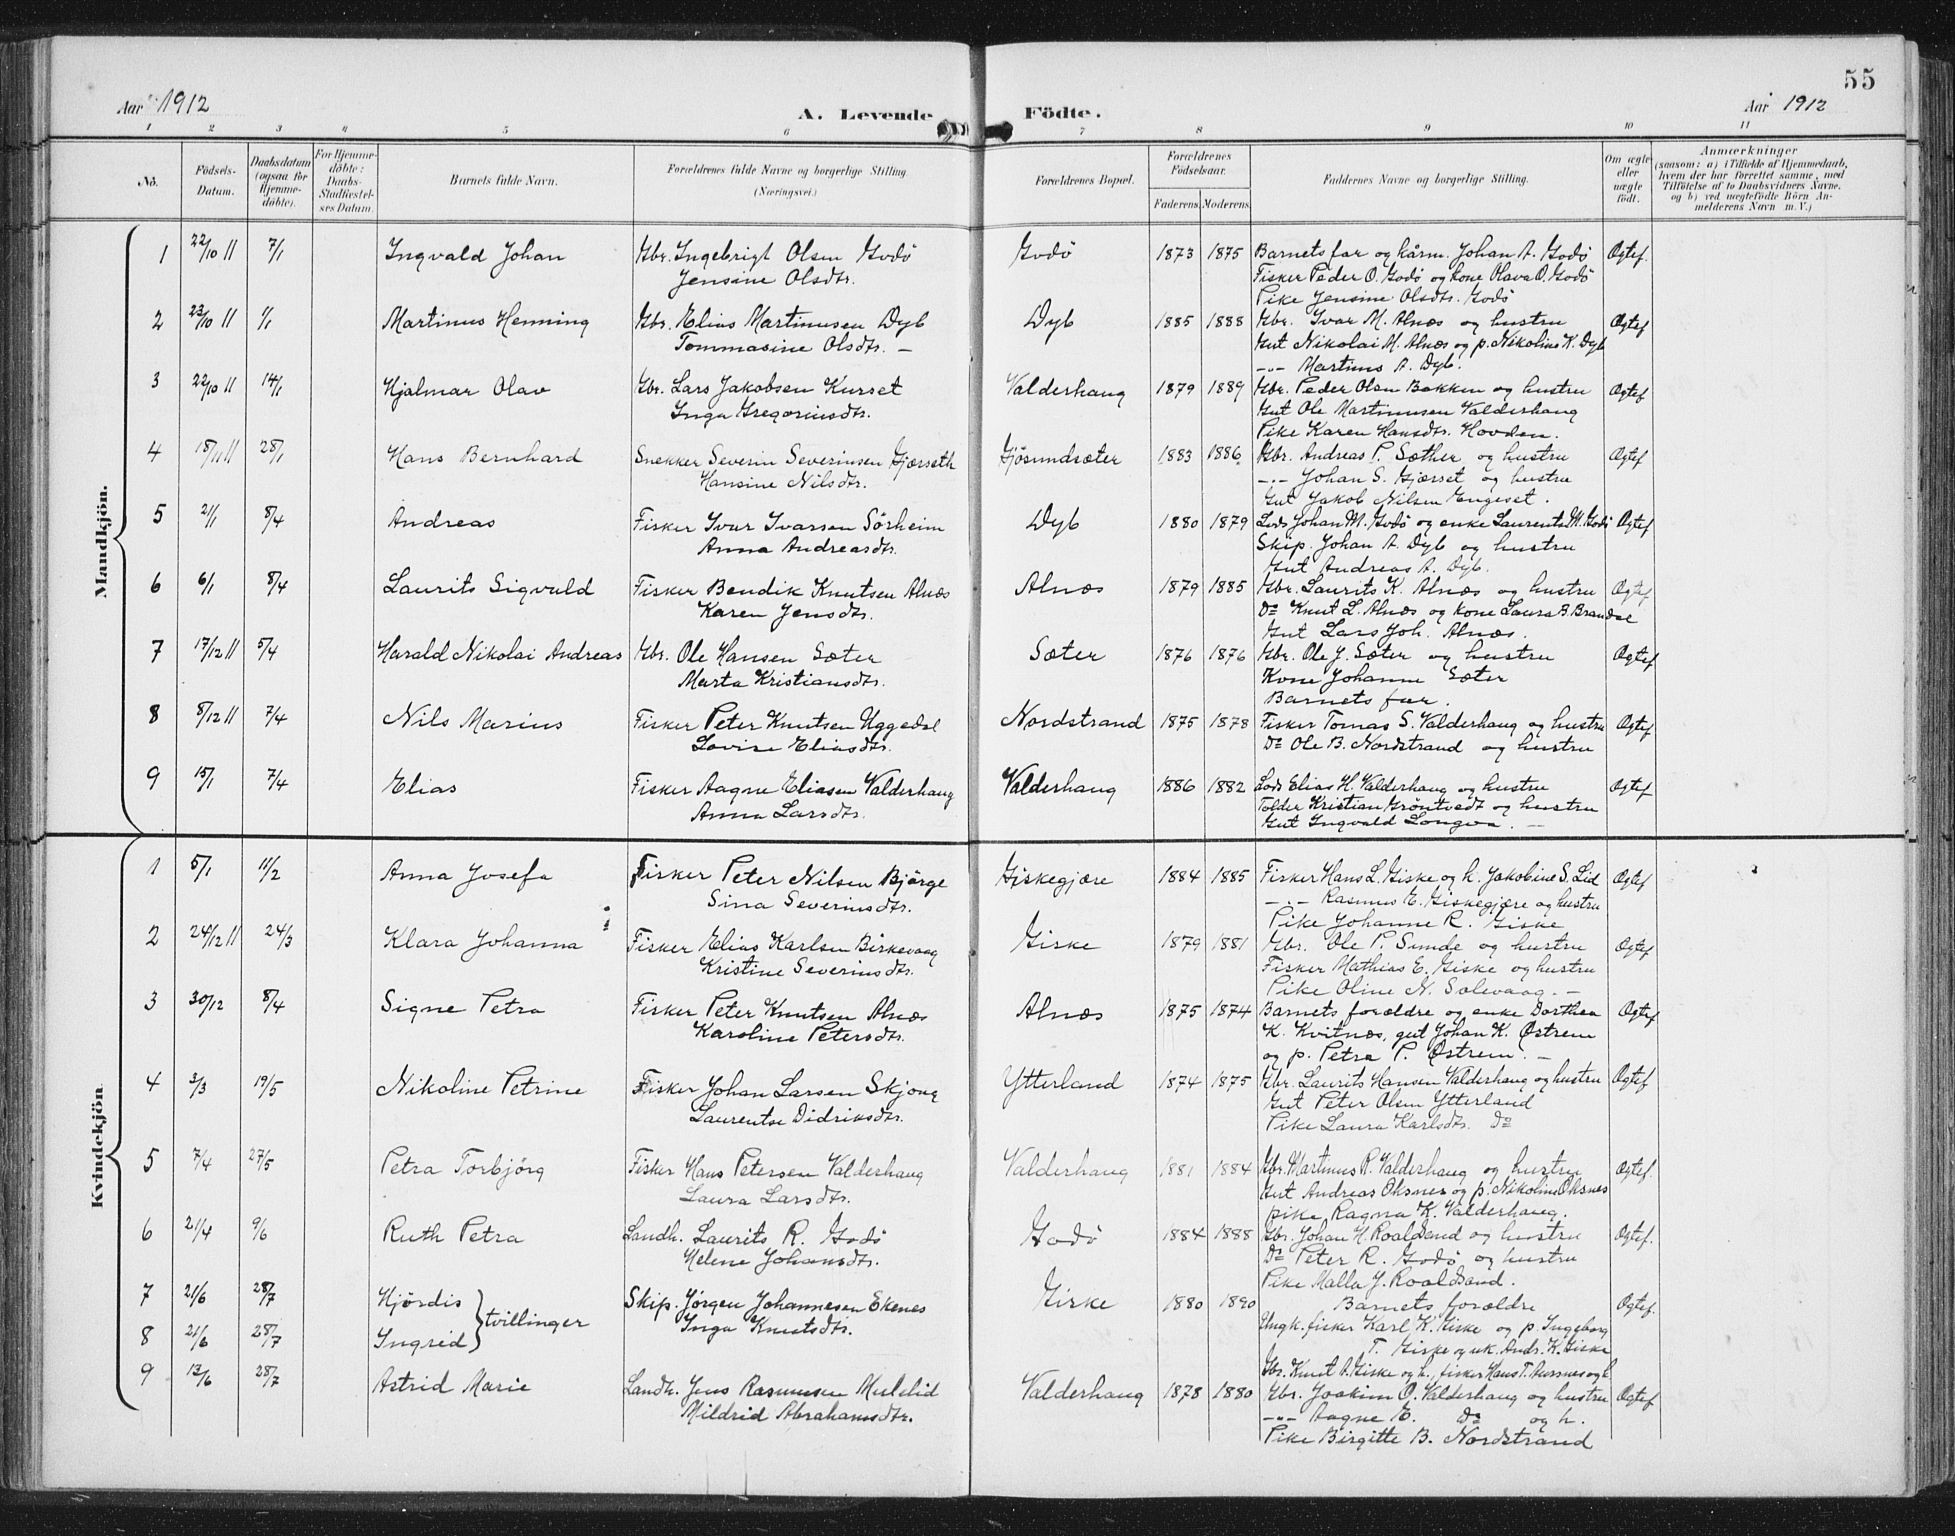 55
Aar 1912
A. Levende Födte.
Aar 1912
1 2 3 4 5 6 7 8 9 10 11
No.
Födsels-Datum.
Daabsdatum (ogsaa for Hjemme-döbte).
For Hjemme-döbte: Daabs-Stadfæstel-ses Datum.
Barnets fulde Navn.
Forældrenes fulde Navne og borgerlige Stilling. (Næringsvei.)
Forældrenes Bopæl.
Forældrenes Födselsaar.
Faderens. Moderens.
Faddernes Navne og borgerlige Stilling.
Om ægte eller uægte födt.
Anmærkninger
(saasom: a) i Tilfælde af Hjemmedaab,
hvem der har forrettet samme, med
Tilföielse af to Daabsvidners Navne,
og b) ved uægtefödte Börn An-
melderens Navn m. V.)
Mandkjön.
1 22/10 11 7/1 Ingvald Johan Gbr. Ingebrigt Olsen Godö Godö 1873 1875 Barnets far og kårm. Johan A. Godö Ægtef.
Jensine Olsdtr. Fisker Peder O. Godö og kone Olava O. Godö
Pike Jensine Olsdtr. Godö
2 23/10 11 1/1 Martinus Henning Gbr. Elias Martinusen Dyb Dyb 1885 1888 Gbr. Ivar M. Alnæs og hustru Ægtef
Tommasine Olsdtr. – Gut Nikolai M. Alnæs og p. Nikoline K. Dyb
-"- Martinus A. Dyb.
3 22/10 11 14/1 Hjalmar Olav Gbr. Lars Jakobsen Kurset Valderhaug 1879 1889 Gbr. Peder Olsen Bakken og hustru Ægtef
Inga Gregoriusdtr. Gut Ole Martinusen Valderhaug
Pike Karen Hansdtr. Hovden.
4 18/11 11 28/1 Hans Bernhard Snekker Severin Severinsen Gjærseth Gjösundsæter 1883 1886 Gbr. Andreas P. Sæther og hustru Ægtef
Hansine Nilsdtr. -"- Johan S. Gjærset og hustru
Gut Jakob Nilsen Engeset.
5 21/1 8/4 Andreas Fisker Ivar Ivarsen Sörheim Dyb 1880 1879 Lods Johan M. Godö og enke Laurentse M. Godö Ægtef
Anna Andreasdtr. Skip. Johan A. Dyb og hustru
Gut Andreas A. Dyb.
6 6/1 8/4 Laurits Sigvald Fisker Bendik Knutsen Alnæs Alnæs 1879 1885 Gbr. Laurits K. Alnæs og hustru Ægtef
Karen Jensdtr. Do Knut L. Alnæs og kone Laura B. Brandal
Gut Lars Joh. Alnæs.
7 17/12 11 5/4 Harald Nikolai Andreas Gbr. Ole Hansen Sæter Sæter 1876 1876 Gbr. Ole J. Sæter og hustru Ægtef
Marta Kristiansdtr. Kone Johanne Sæter
Barnets far.
8 8/12 11 7/4 Nils Marius Fisker Peter Knutsen Uggedal Nordstrand 1875 1878 Fisker Tomas S. Valderhaug og hustru Ægtef
Lovise Eliasdtr. Do Ole B. Nordstrand og hustru
9 15/1 7/4 Elias Fisker Aagne Eliasen Valderhaug Valderhaug 1886 1882 Lods Elias H. Valderhaug og hustru Ægtef
Anna Larsdtr. Tolder Kristian Gröntvedt og hustru
Gut Ingvald Longva. –
Kvindekjön
1 5/1 11/2 Anna Josefa Fisker Peter Nilsen Björge Giskegjære 1884 1885 Fisker Hans L. Giske og h. Jakobine S. Lid Ægtef
Sina Severinsdtr. -"- Rasmus E. Giskegjære og hustru
Pike Johanne R. Giske
2 24/12 11 24/3 Klara Johanna Fisker Elias Karlsen Birkevaag Giske 1879 1881 Gbr. Ole P. Sunde og hustru Ægtef
Kristine Severinsdtr. Fisker Mathias E. Giske og hustru
Pike Oline N. Solevaag. –
3 30/12 8/4 Signe Petra Fisker Peter Knutsen Alnæs Alnæs 1875 1874 Barnets forældre og enke Dorthea Ægtef
Karoline Petersdtr. K. Kvitnæs, gut Johan K. Östrem
og p. Petra P. Östrem. –
4 3/3 19/5 Nikoline Petrine Fisker Johan Larsen Skjong Ytterland 1874 1875 Gbr. Laurits Hansen Valderhaug og hustru Ægtef
Laurentse Didriksdtr. Gut Peter Olsen Ytterland
Pike Laura Karlsdtr. Do
5 7/4 27/5 Petra Torbjörg Fisker Hans Petersen Valderhaug Valderhaug 1881 1884 Gbr. Martinus R. Valderhaug og hustru Ægtef.
Laura Larsdtr. Gut Andreas Oksnes og p. Nikoline Oksnes
pike Ragna K. Valderhaug.
6 21/4 9/6 Ruth Petra Landh. Laurits R. Godö Godö 1884 1888 Gbr. Johan H. Roaldsand og hustru Ægtef.
Helene Johansdtr. Do Peter R. Godö og hustru
Pike Malla J. Roaldsand.
7 21/6 28/7 Hjördis } tvillinger Skip. Jörgen Johannesen Ekenes Giske 1880 1890 Barnets forældre Ægtef.
8 21/6 28/7 Ingrid Inga Knutsdtr. Ungk. fisker Karl K. Giske og p. Ingeborg
T. Giske og uk. Andr. K. Giske
Gbr. Knut A. Giske og h., fisker Hans T. Aursnes og h.
9 13/6 28/7 Astrid Marie Landh. Jens Rasmussen Mulelid Valderhaug 1878 1880 Gbr. Joakim O. Valderhaug og hustru Ægtef
Mildrid Abrahamsdtr. -"- Aagne E. Do og h.
Pike Birgitte B. Nordstrand